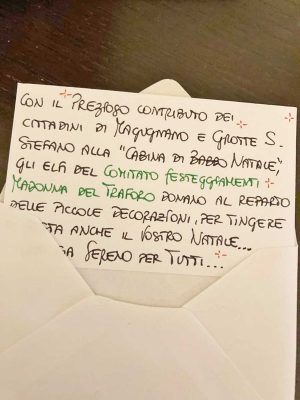 CON IL PREZIOSO CONTRIBUTO DEI
CITTADINI DI MAGUGNANO E GROTTE S.
STEFANO ALLA "CABINA DI BABBO NATALE",
GLI ELFI DEL COMITATO FESTEGGIAMENTI
MADONNA DEL TRAFORO DONANO AL REPARTO
DELLE PICCOLE DECORAZIONI, PER TINGERE
ANCHE IL VOSTRO NATALE...
SERENO PER TUTTI...